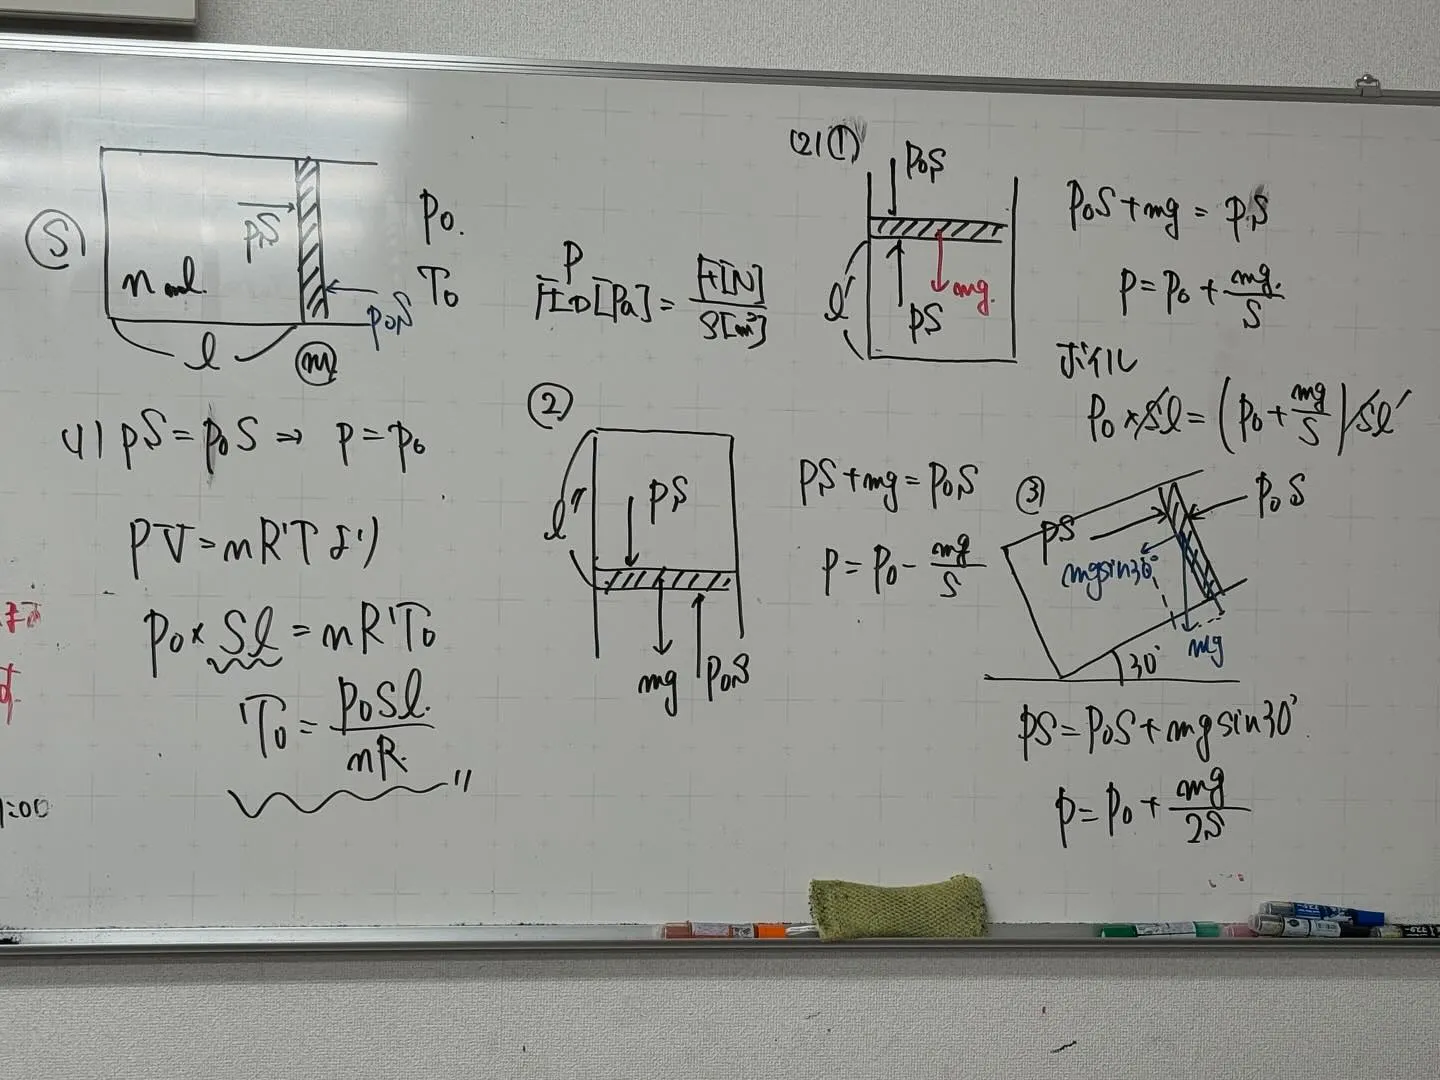 Ⓢ
pS
n mol.
p₀S
l
ⓜ
p₀.
T₀
(1) pS = p₀S ⇒ p = p₀
PV = nRTより
p₀ × Sl = nRT₀
T₀ = p₀Sl. / nR. 〃
P
圧力[Pa] = F[N] / S[m²]
(2)①
p₀S
l′
pS
mg.
p₀S + mg = pS
p = p₀ + mg. / S
ボイル
p₀ × Sl = (p₀ + mg / S) Sl′
②
l″
pS
mg
p₀S
pS + mg = p₀S
p = p₀ - mg / S
③
pS
p₀S
mgsin30°
mg
30°
pS = p₀S + mg sin30°
p = p₀ + mg / 2S
1:00